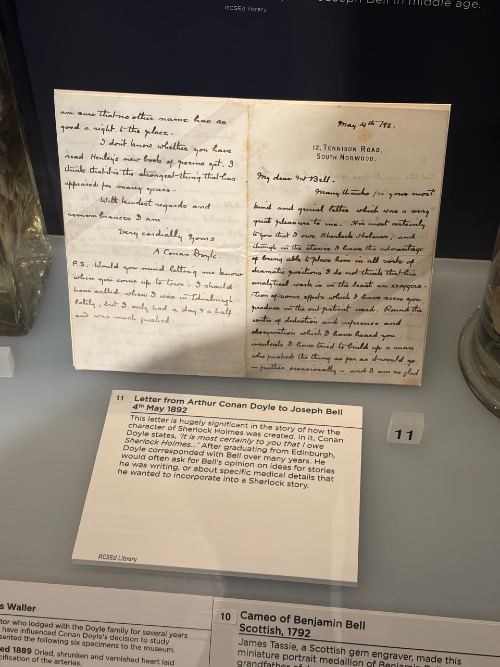 Joseph Bell in middle age.
RCSEd library
am sure that no other name has as
good a right to the place.
I don't know whether you have
read Henley's new book of poems yet. I
think that it is the strongest thing that has
appeared for many years.
With kindest regards and
remembrances I am
Very cordially Yours
A Conan Doyle.
P.S. Would you mind letting me know
when you come up to town. I should
have called when I was in Edinburgh
lately, but I only had a day & a half
and was much pushed.
May 4th /92.
12, TENNISON ROAD,
SOUTH NORWOOD.
My dear Dr Bell.
Many thanks for your most
kind and genial letter which was a very
great pleasure to me. It is most certainly
to you that I owe Sherlock Holmes, and
though in the stories I have the advantage
of being able to place him in all sorts of
dramatic positions I do not think that his
analytical work is in the least an exaggera-
tion of some effects which I have seen you
produce in the out patient ward. Round the
centre of deduction and inference and
observation which I have heard you
inculcate I have tried to build up a man
who pushed the thing as far as it would go
— further occasionally — and I am so glad
11 Letter from Arthur Conan Doyle to Joseph Bell
4th May 1892
This letter is hugely significant in the story of how the
character of Sherlock Holmes was created. In it, Conan
Doyle states, 'It is most certainly to you that I owe
Sherlock Holmes...' After graduating from Edinburgh,
Doyle corresponded with Bell over many years. He
would often ask for Bell's opinion on ideas for stories
he was writing, or about specific medical details that
he wanted to incorporate into a Sherlock story.
RCSEd Library
11
s Waller
tor who lodged with the Doyle family for several years
have influenced Conan Doyle's decision to study
sented the following six specimens to the museum.
ed 1889 Dried, shrunken and varnished heart laid
cification of the arteries.
10 Cameo of Benjamin Bell
Scottish, 1792
James Tassie, a Scottish gem engraver, made this
miniature portrait medallion of Benjamin